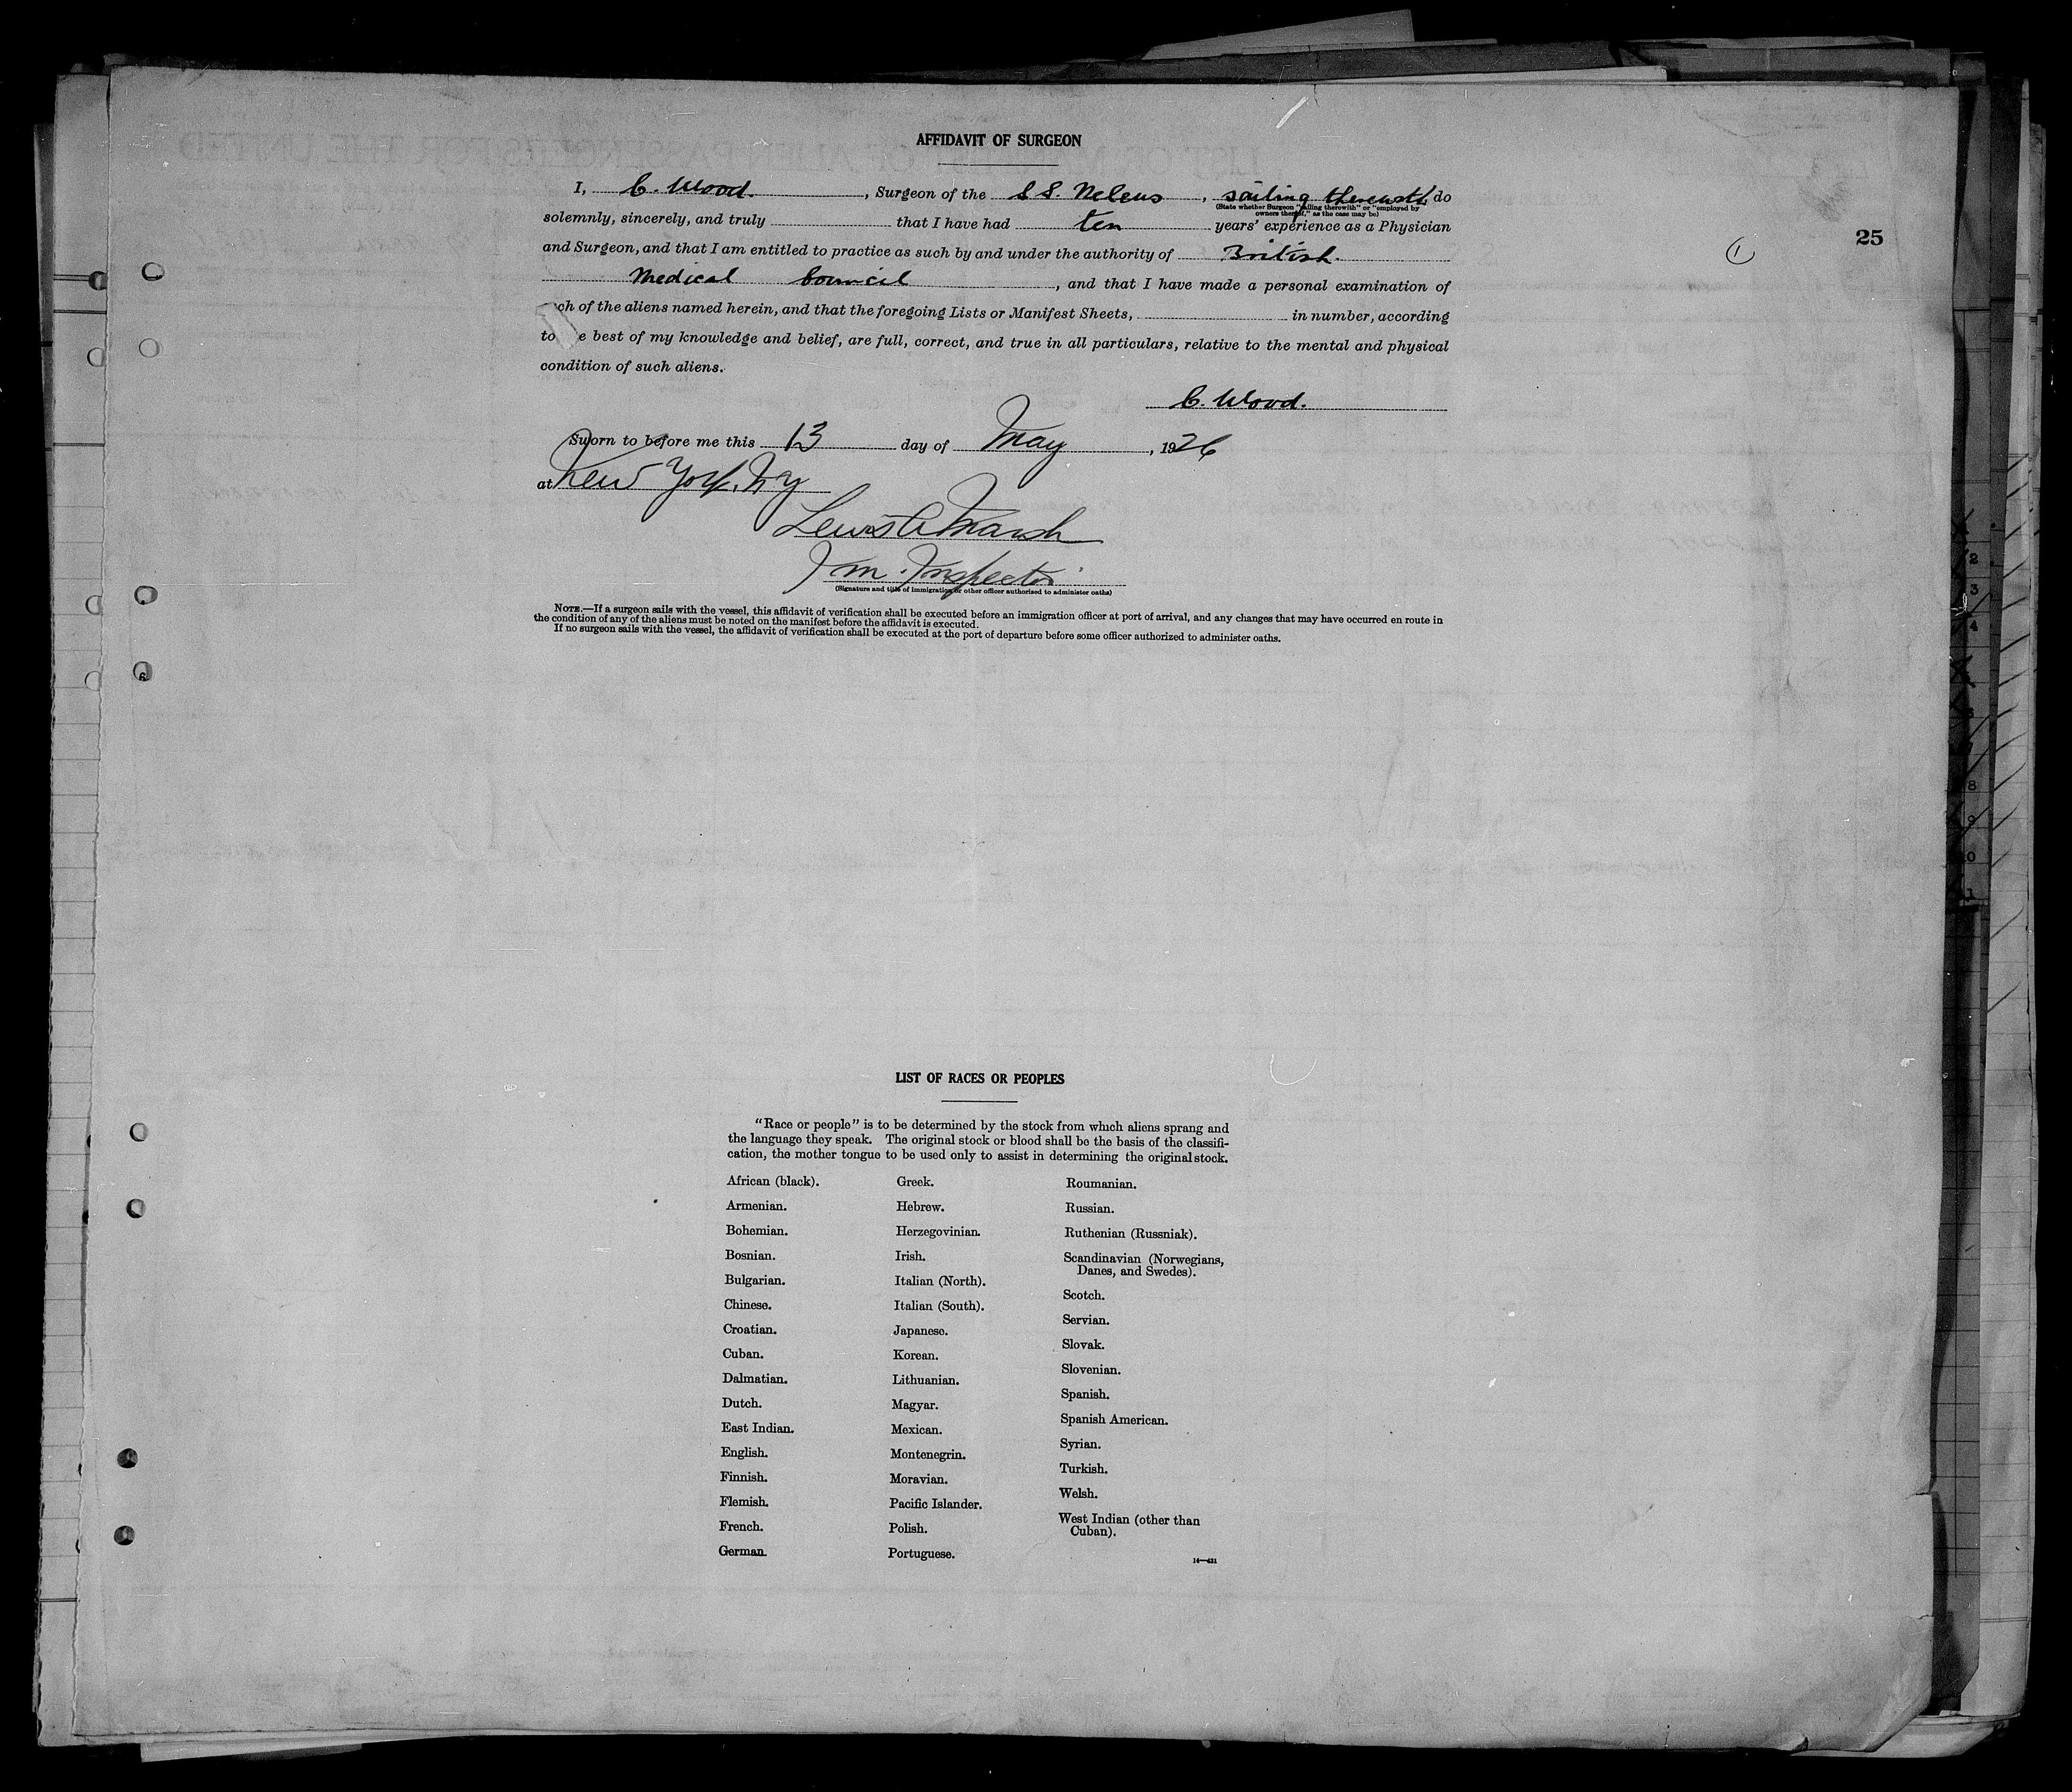 AFFIDAVIT OF SURGEON
I, C. Wood. , Surgeon of the S.S. Neleus , sailing therewith, do
(State whether Surgeon "sailing therewith" or "employed by
owners thereof," as the case may be)
solemnly, sincerely, and truly that I have had ten years' experience as a Physician
25
and Surgeon, and that I am entitled to practice as such by and under the authority of British
1
Medical Council , and that I have made a personal examination of
ch of the aliens named herein, and that the foregoing Lists or Manifest Sheets, in number, according
to e best of my knowledge and belief, are full, correct, and true in all particulars, relative to the mental and physical
condition of such aliens.
C. Wood.
Sworn to before me this 13 day of May , 1926
at New York, N.Y
Lewis A Marsh
Im. Inspector
(Signature and title of immigration or other officer authorized to administer oaths)
NOTE.—If a surgeon sails with the vessel, this affidavit of verification shall be executed before an immigration officer at port of arrival, and any changes that may have occurred en route in
the condition of any of the aliens must be noted on the manifest before the affidavit is executed.
If no surgeon sails with the vessel, the affidavit of verification shall be executed at the port of departure before some officer authorized to administer oaths.
LIST OF RACES OR PEOPLES
"Race or people" is to be determined by the stock from which aliens sprang and
the language they speak. The original stock or blood shall be the basis of the classifi-
cation, the mother tongue to be used only to assist in determining the original stock.
African (black).
Armenian.
Bohemian.
Bosnian.
Bulgarian.
Chinese.
Croatian.
Cuban.
Dalmatian.
Dutch.
East Indian.
English.
Finnish.
Flemish.
French.
German.
Greek.
Hebrew.
Herzegovinian.
Irish.
Italian (North).
Italian (South).
Japanese.
Korean.
Lithuanian.
Magyar.
Mexican.
Montenegrin.
Moravian.
Pacific Islander.
Polish.
Portuguese.
Roumanian.
Russian.
Ruthenian (Russniak).
Scandinavian (Norwegians,
Danes, and Swedes).
Scotch.
Servian.
Slovak.
Slovenian.
Spanish.
Spanish American.
Syrian.
Turkish.
Welsh.
West Indian (other than
Cuban).
14—431
2
3
4
8
9